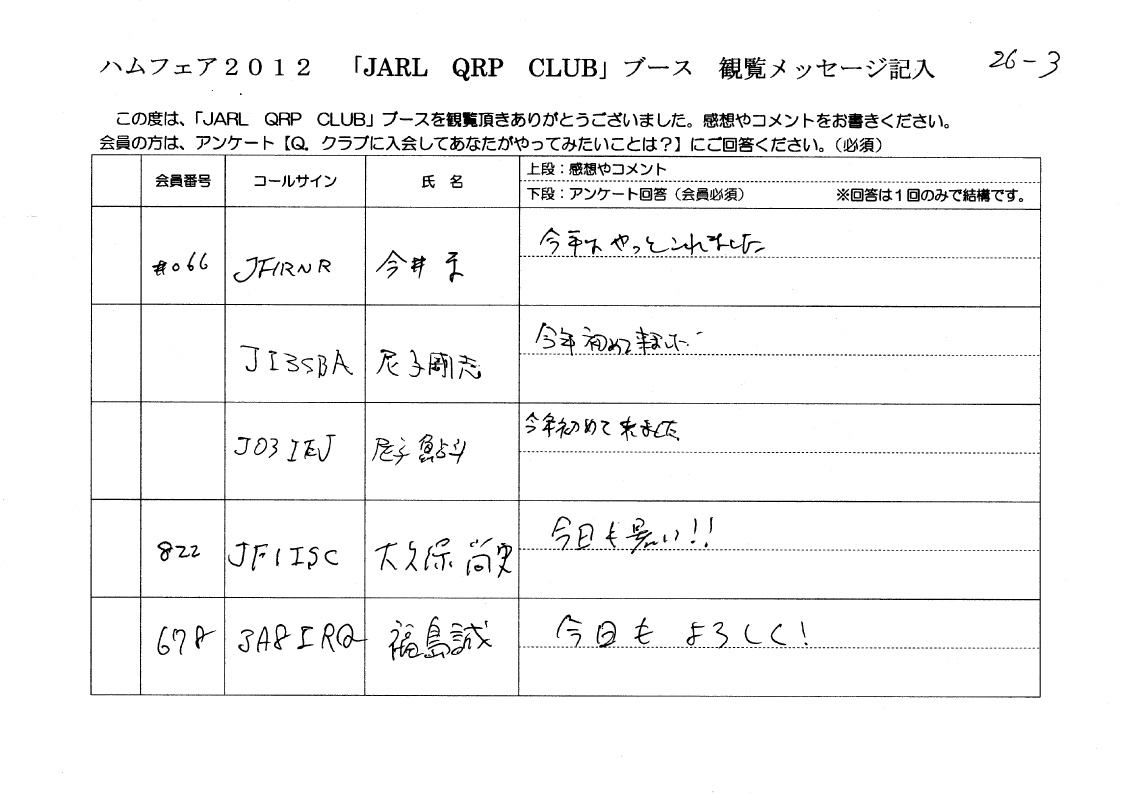 ハムフェア２０１２　「JARL　QRP　CLUB」ブース　観覧メッセージ記入
26-3
この度は、「JARL　QRP　CLUB」ブースを観覧頂きありがとうございました。感想やコメントをお書きください。
会員の方は、アンケート【Q. クラブに入会してあなたがやってみたいことは？】にご回答ください。（必須）
会員番号　コールサイン　氏 名　上段：感想やコメント
下段：アンケート回答（会員必須）　※回答は１回のみで結構です。
今年はやっとこれました
#066 JF1RNR 今井
今年初めて来ました
JI3SBA 尼子剛志
今年初めて来ました
JO3IEJ 尼子
今日も暑い!!
822 JF1ISC 大久保 尚史
今日も よろしく!
678 JA8IRQ 福島誠